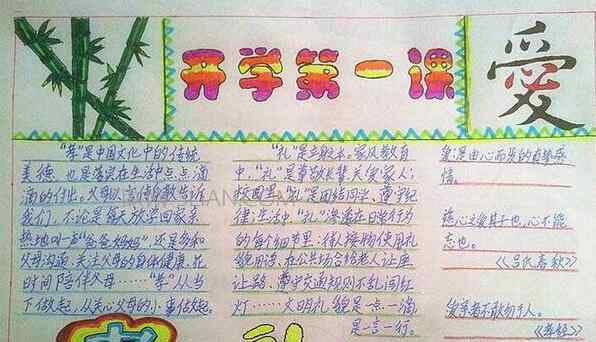 开学第一课
爱
“孝”是中国文化中的传统
美德，也是落实在生活中点点滴
滴的付出。父母以言传身教告诉
我们，不论是每天放学回家亲
热地叫一声“爸爸妈妈”，还是多和
父母沟通，关注父母的身体健康，花
时间陪伴父母……“孝”从当
下做起，从关心父母的小事做起。
“礼”是立身之本。家风教育
中，“礼”是尊敬长辈、关爱家人；
校园里，“礼”是团结同学、遵守纪
律；生活中，“礼”渗透在日常行为
的每个细节里：待人接物使用礼
貌用语，在公共场合给老人让座
让路，遵守交通规则不乱闯红
灯……文明礼貌是一点一滴，
是一言一行。
爱是由心而发的真挚感
情。
慈心之爱其子也，心不能
忘也。
《吕氏春秋》
爱亲者不敢恶于人。
《孝经》
孝
礼